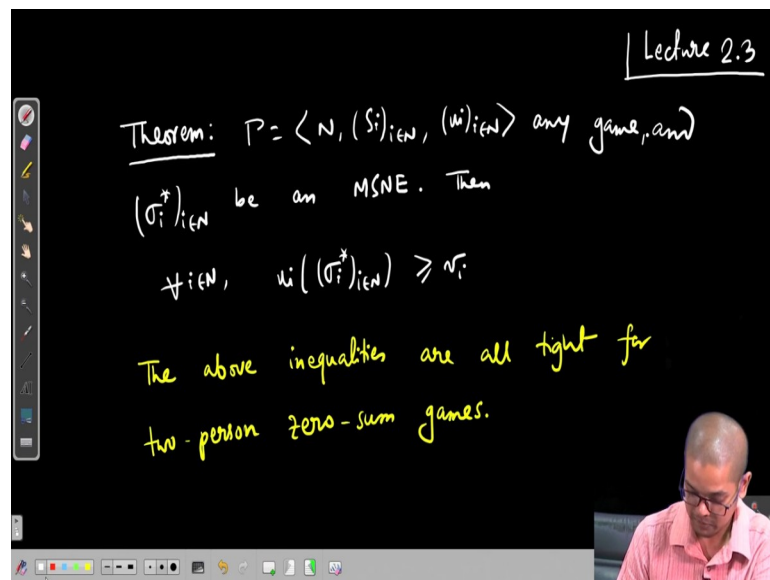 Lecture 2.3
Theorem: Γ = ⟨N, (Si)i∈N, (ui)i∈N⟩ any game, and
(σi*)i∈N be an MSNE. Then
∀i∈N, ui((σi*)i∈N) ⩾ vi
The above inequalities are all tight for
two-person zero-sum games.